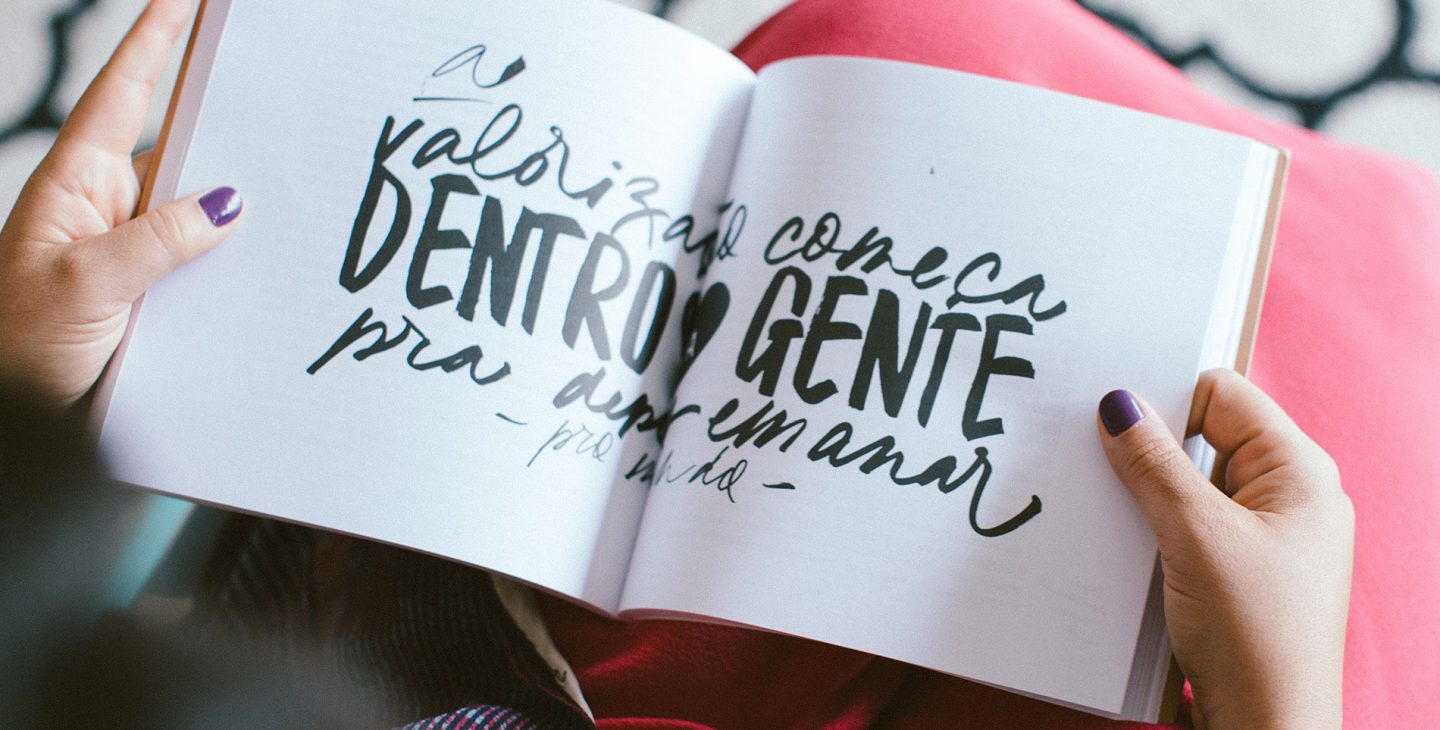 a
valorização começa
DENTRO GENTE
pra depois emanar
- pro mundo -